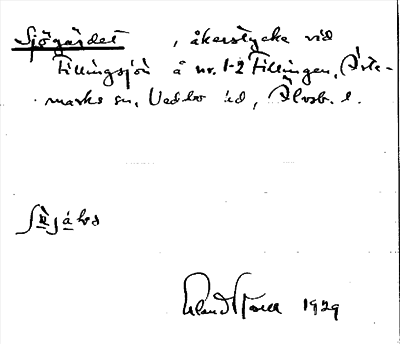 Sjögärdet, åkerstycke vid
Tillingsjön å nr. 1-2 Tillingen, Årte-
marks sn, Vedbo hd, Älvsb. l.
Erland 1929